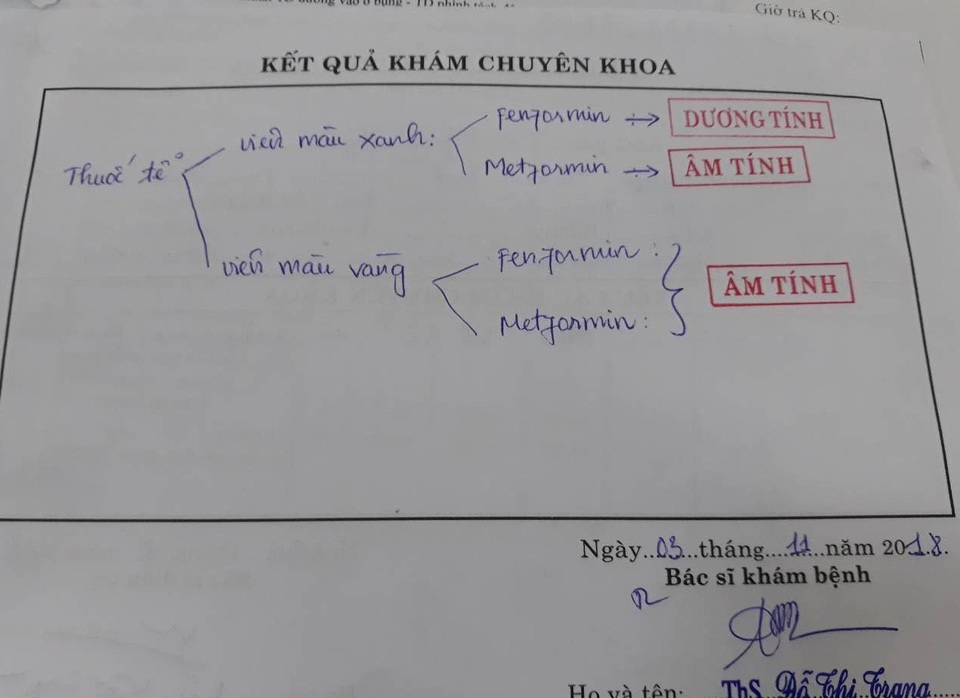 Giờ trả KQ:
KẾT QUẢ KHÁM CHUYÊN KHOA
Thuốc tễ
viên màu xanh:
Fenformin → DƯƠNG TÍNH
Metformin → ÂM TÍNH
viên màu vàng
Fenformin :
Metformin :
ÂM TÍNH
Ngày..03...tháng....11...năm 2018.
Bác sĩ khám bệnh
Họ và tên: ThS. Đỗ Thị Trang